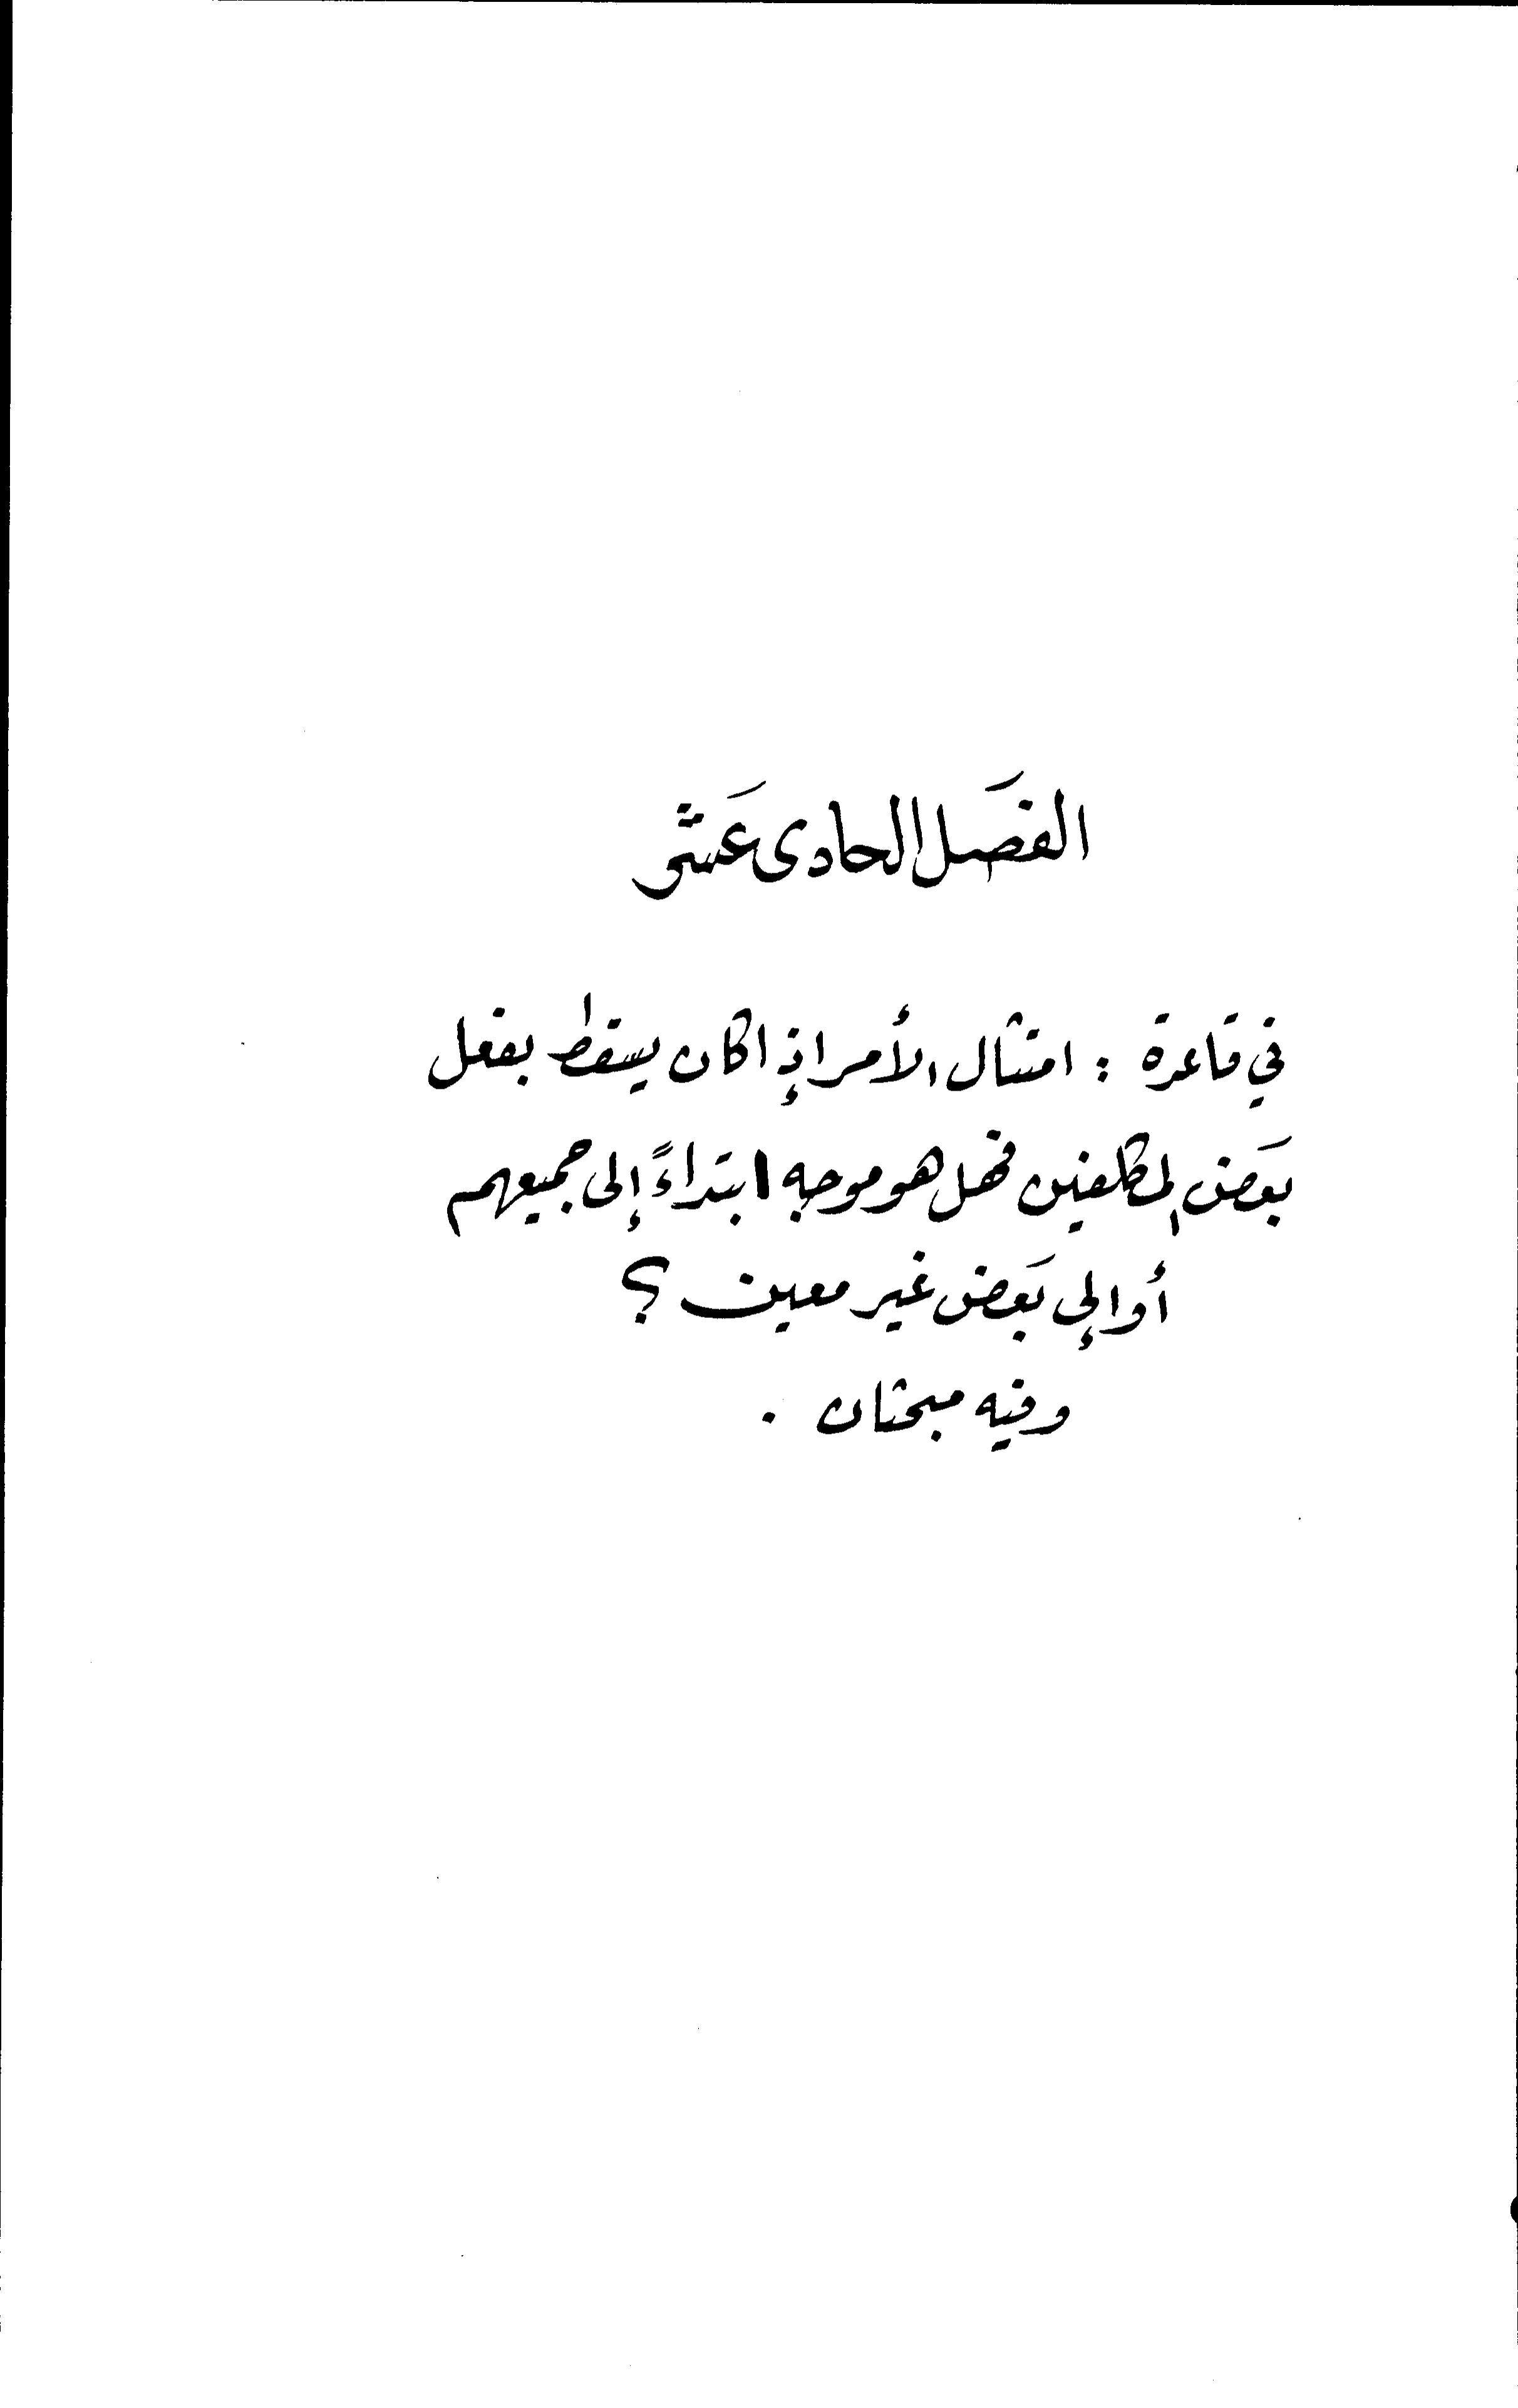 الفصَل الحادى عَشر
في قاعدة : امتثال الأمر إذا كان يسقط بفعل
بَعض المكلفين فهل هو موجه ابتداءً إلى جميعهم
أو إلى بَعض غير معين ؟
وفيه مبحثان .